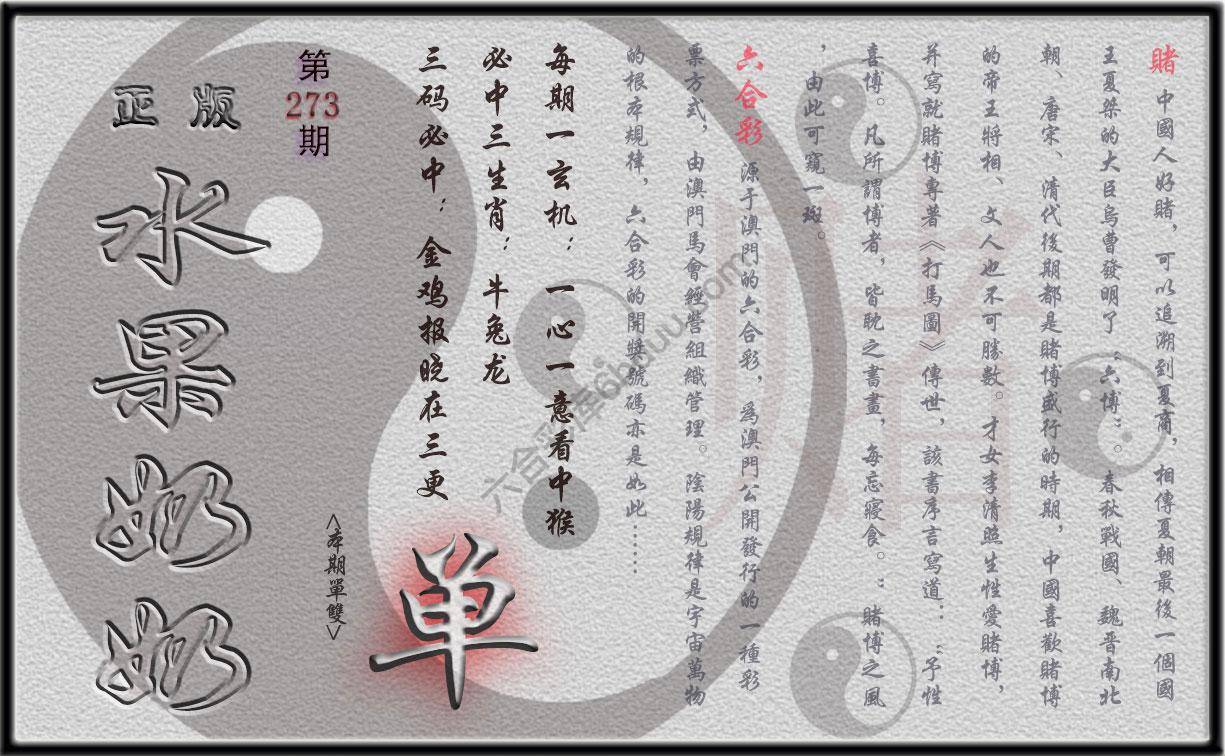 賭 中國人好賭，可以追溯到夏商，相傳夏朝最後一個國
王夏桀的大臣烏曹發明了“六博”。春秋戰國、魏晋南北
朝、唐宋、清代後期都是賭博盛行的時期，中國喜歡賭博
的帝王將相、文人也不可勝數。才女李清照生性愛賭博，
并寫就賭博專著《打馬圖》傳世，該書序言寫道：“予性
喜博。凡所謂博者，皆耽之書畫，每忘寢食。”賭博之風
，由此可窺一斑。
六合彩 源于澳門的六合彩，爲澳門公開發行的一種彩
票方式，由澳門馬會經營組織管理。陰陽規律是宇宙萬物
的根本規律，六合彩的開獎號碼亦是如此……
每期一玄机：一心一意看中猴
必中三生肖：牛兔龙
三码必中：金鸡报晓在三更
单
<本期單雙>
第
273
期
正版
水果奶奶
六合彩库6bduu.com